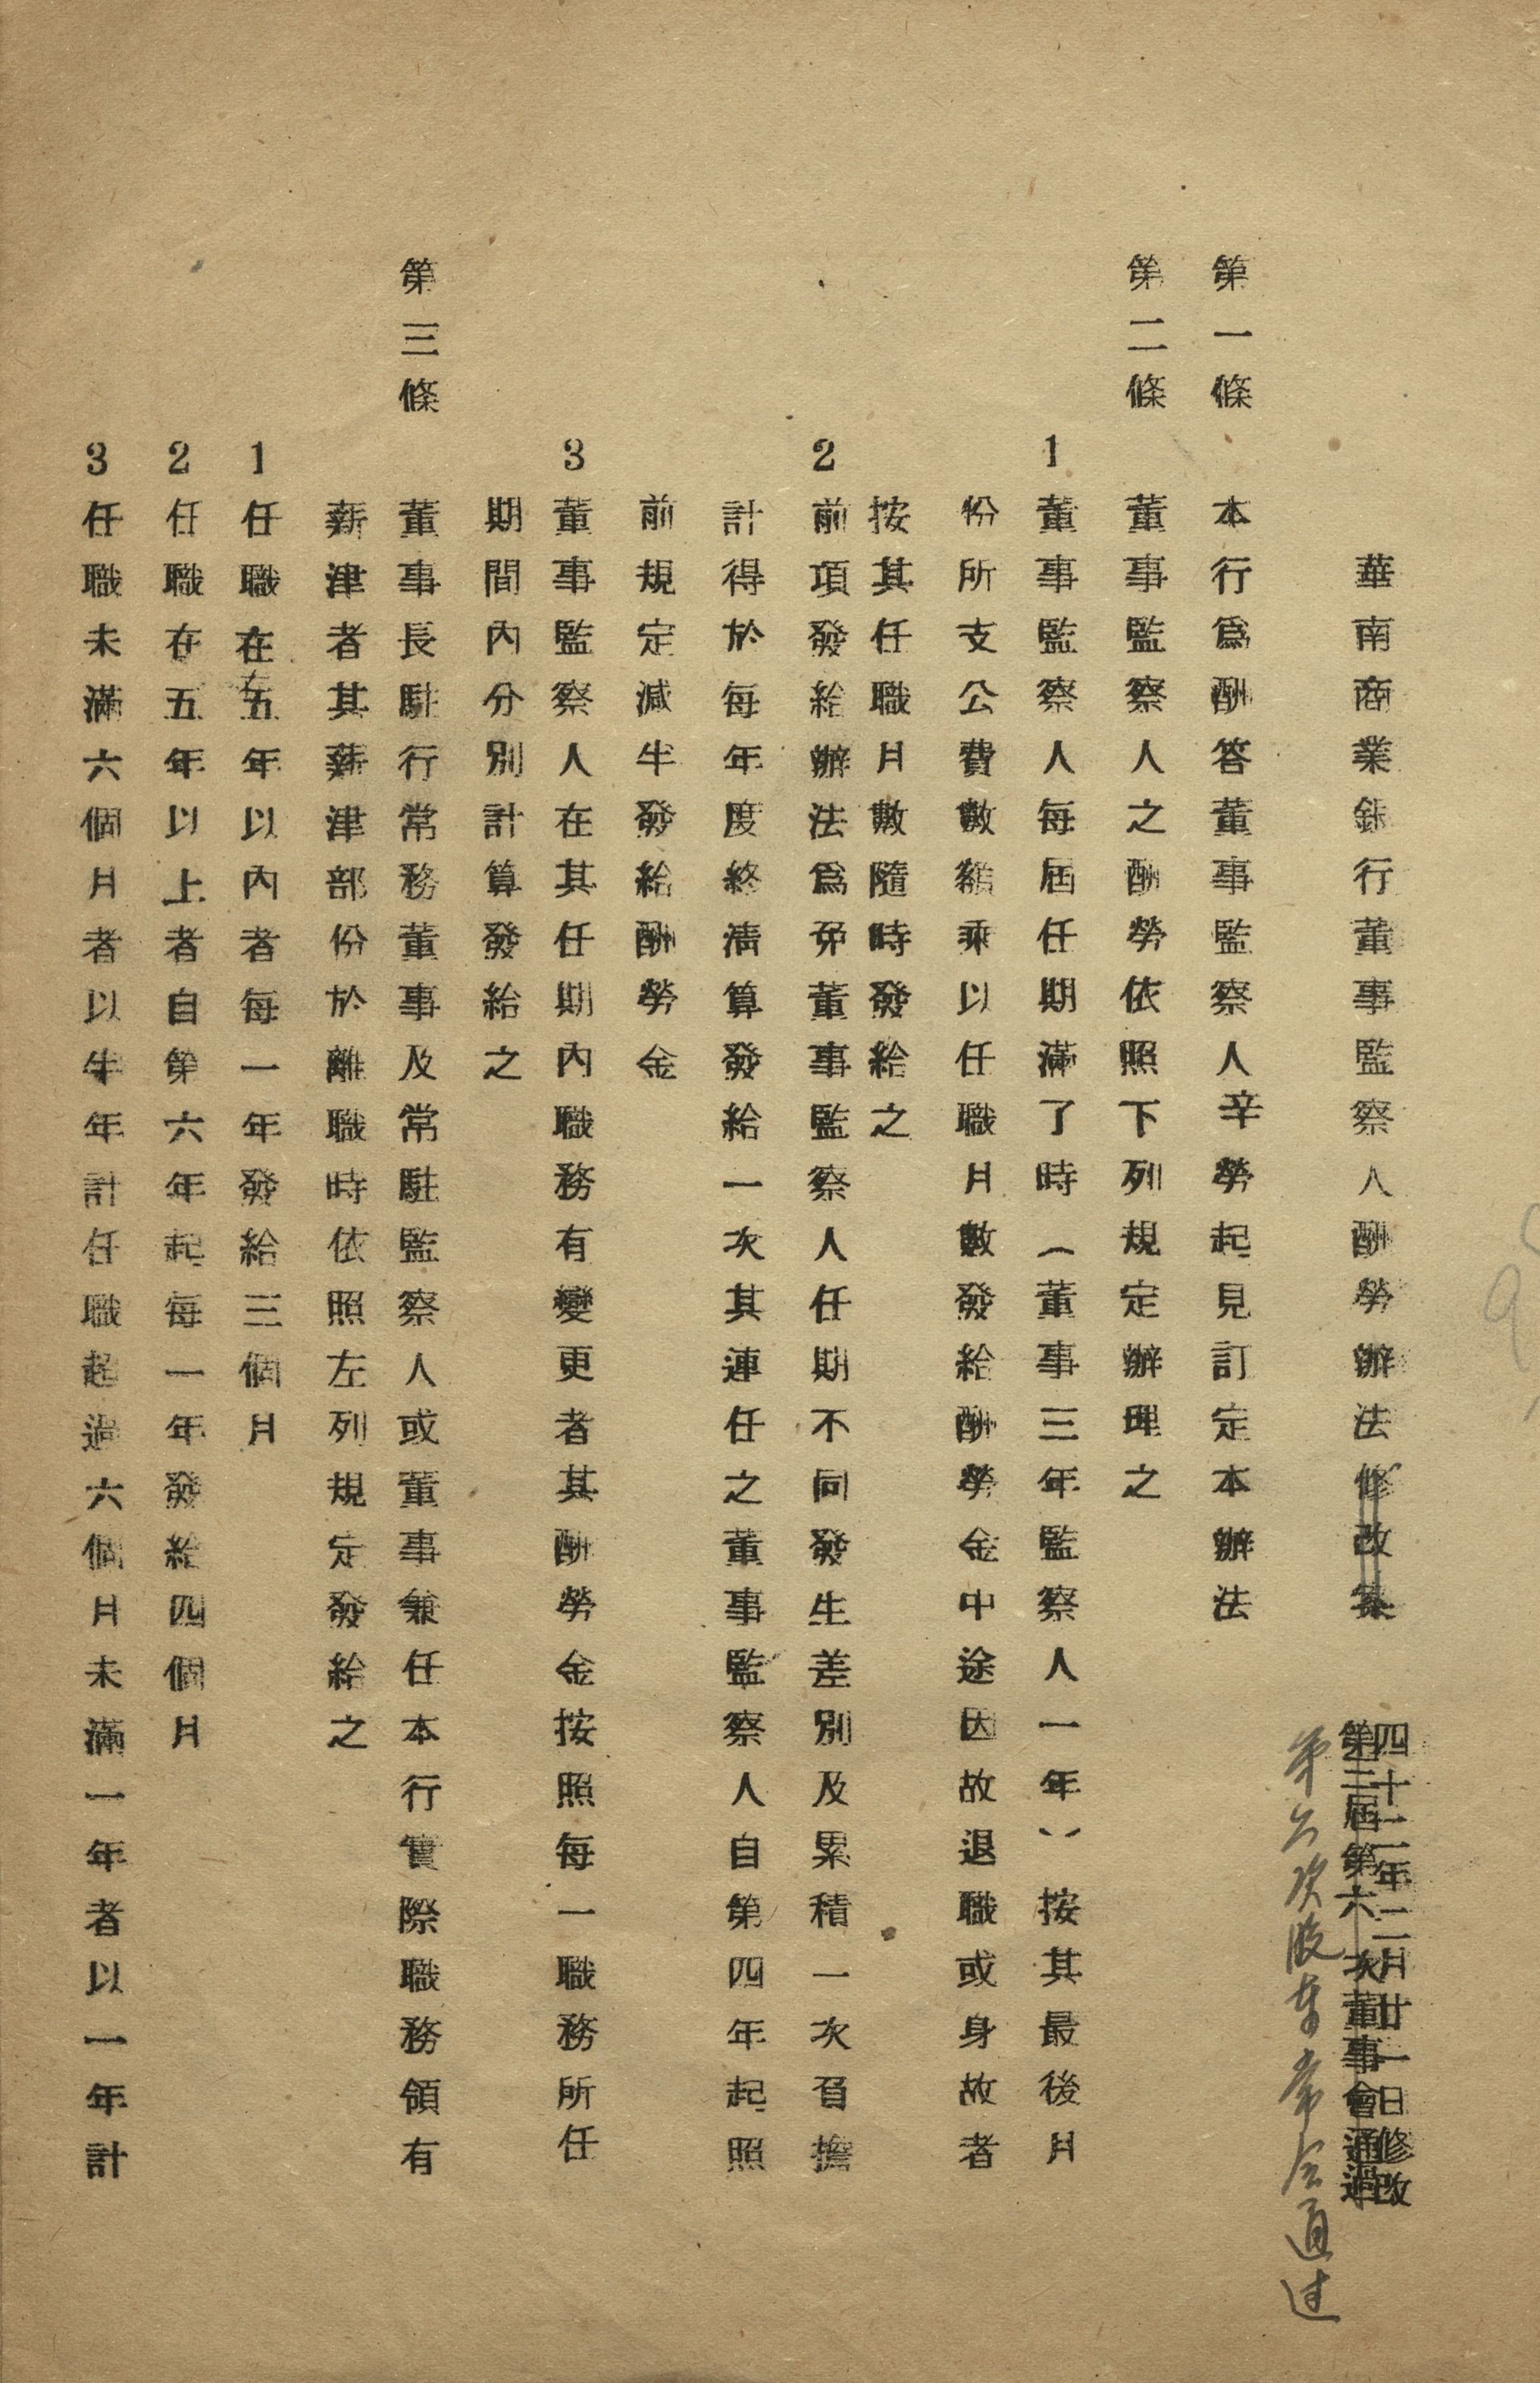 華南商業銀行董事監察人酬勞辦法修改案
四十二年二月廿一日修改
第三屆第六次董事會通過
第六次股東常会通过
第一條 本行爲酬答董事監察人辛勞起見訂定本辦法
第二條 董事監察人之酬勞依照下列規定辦理之
1 董事監察人每屆任期滿了時（董事三年監察人一年）按其最後月
份所支公費數額乘以任職月數發給酬勞金中途因故退職或身故者
按其任職月數隨時發給之
2 前項發給辦法爲免董事監察人任期不同發生差別及累積一次負擔
計得於每年度終清算發給一次其連任之董事監察人自第四年起照
前規定減半發給酬勞金
3 董事監察人在其任期內職務有變更者其酬勞金按照每一職務所任
期間內分別計算發給之
第三條 董事長駐行常務董事及常駐監察人或董事兼任本行實際職務領有
薪津者其薪津部份於離職時依照左列規定發給之
1 任職在五年以內者每一年發給三個月
2 任職在五年以上者自第六年起每一年發給四個月
3 任職未滿六個月者以半年計任職超過六個月未滿一年者以一年計